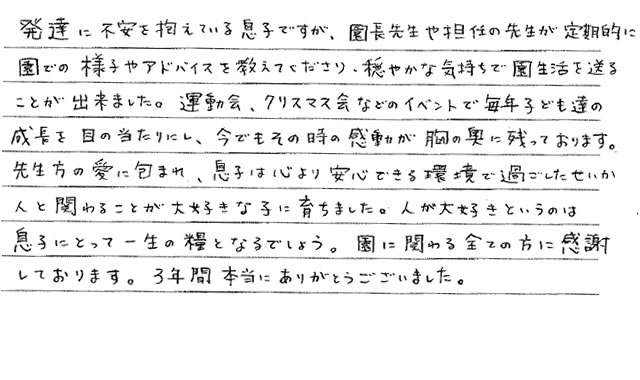 発達に不安を抱えている息子ですが、園長先生や担任の先生が定期的に
園での様子やアドバイスを教えてくださり、穏やかな気持ちで園生活を送る
ことが出来ました。運動会、クリスマス会などのイベントで毎年子ども達の
成長を目の当たりにし、今でもその時の感動が胸の奥に残っております。
先生方の愛に包まれ、息子は心より安心できる環境で過ごしたせいか
人と関わることが大好きな子に育ちました。人が大好きというのは
息子にとって一生の糧となるでしょう。園に関わる全ての方に感謝
しております。3年間本当にありがとうございました。